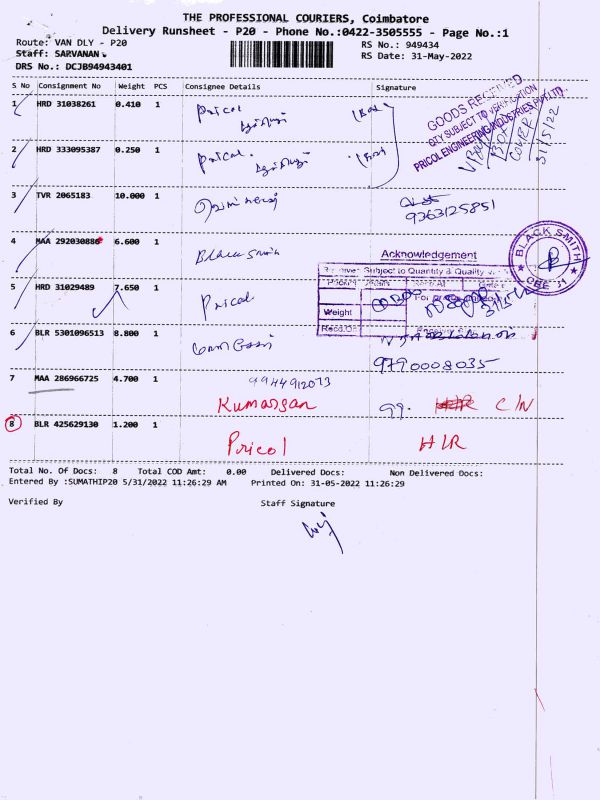 THE PROFESSIONAL COURIERS, Coimbatore
Delivery Runsheet - P20 - Phone No.:0422-3505555 - Page No.:1
Route: VAN DLY - P20
Staff: SARVANAN
DRS No.: DCJB94943401
RS No.: 949434
RS Date: 31-May-2022
S No Consignment No Weight PCS Consignee Details Signature
1 HRD 31038261 0.410 1 Pricol
GOODS RECEIVED
QTY SUBJECT TO VERIFICATION
PRICOL ENGINEERING INDUSTRIES PVT LTD
BOX
COVER
31/5/22
2 HRD 333095387 0.250 1 Pricol
3 TVR 2065183 10.000 1
9363125851
4 MAA 292030886 6.600 1 Black Smith
BLACK SMITH
CBE
Acknowledgement
Subject to Quantity & Quality
5 HRD 31029489 7.650 1 Pricol
Weight
6 BLR 5301096513 8.800 1
9790008035
7 MAA 286966725 4.700 1 9944912073
Kumaresan C/N
8 BLR 425629130 1.200 1 Pricol HLR
Total No. Of Docs: 8 Total COD Amt: 0.00 Delivered Docs: Non Delivered Docs:
Entered By :SUMATHIP20 5/31/2022 11:26:29 AM Printed On: 31-05-2022 11:26:29
Verified By Staff Signature